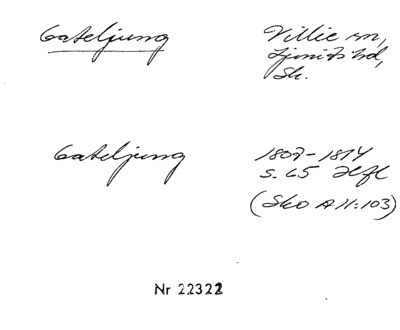 Gateljung
Villie sn,
Ljunits hd,
Sk.
Gateljung
1809-1814
s. 65 Hfl
(Sko A II:103)
Nr 22322